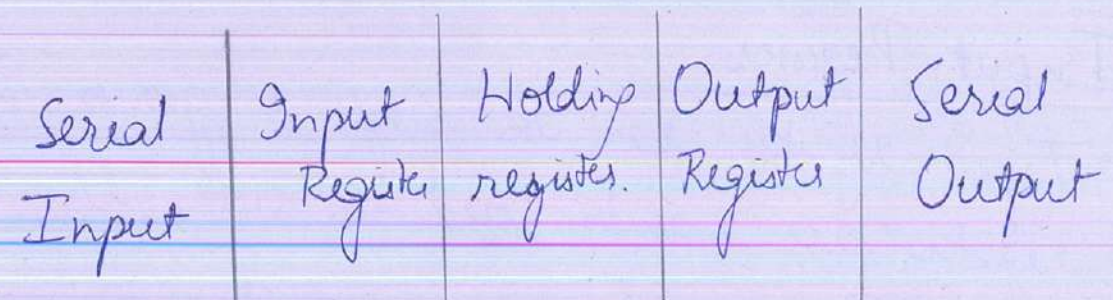 Serial Input
Input Register
Holding register.
Output Register
Serial Output